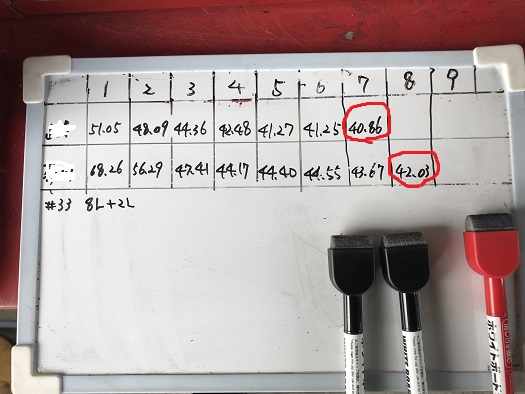 1 2 3 4 5 6 7 8 9
51.05 48.09 44.36 42.48 41.27 41.25 40.86
68.26 56.29 47.41 44.17 44.40 44.55 43.67 42.03
#33 8L+2L
ホワイトボード